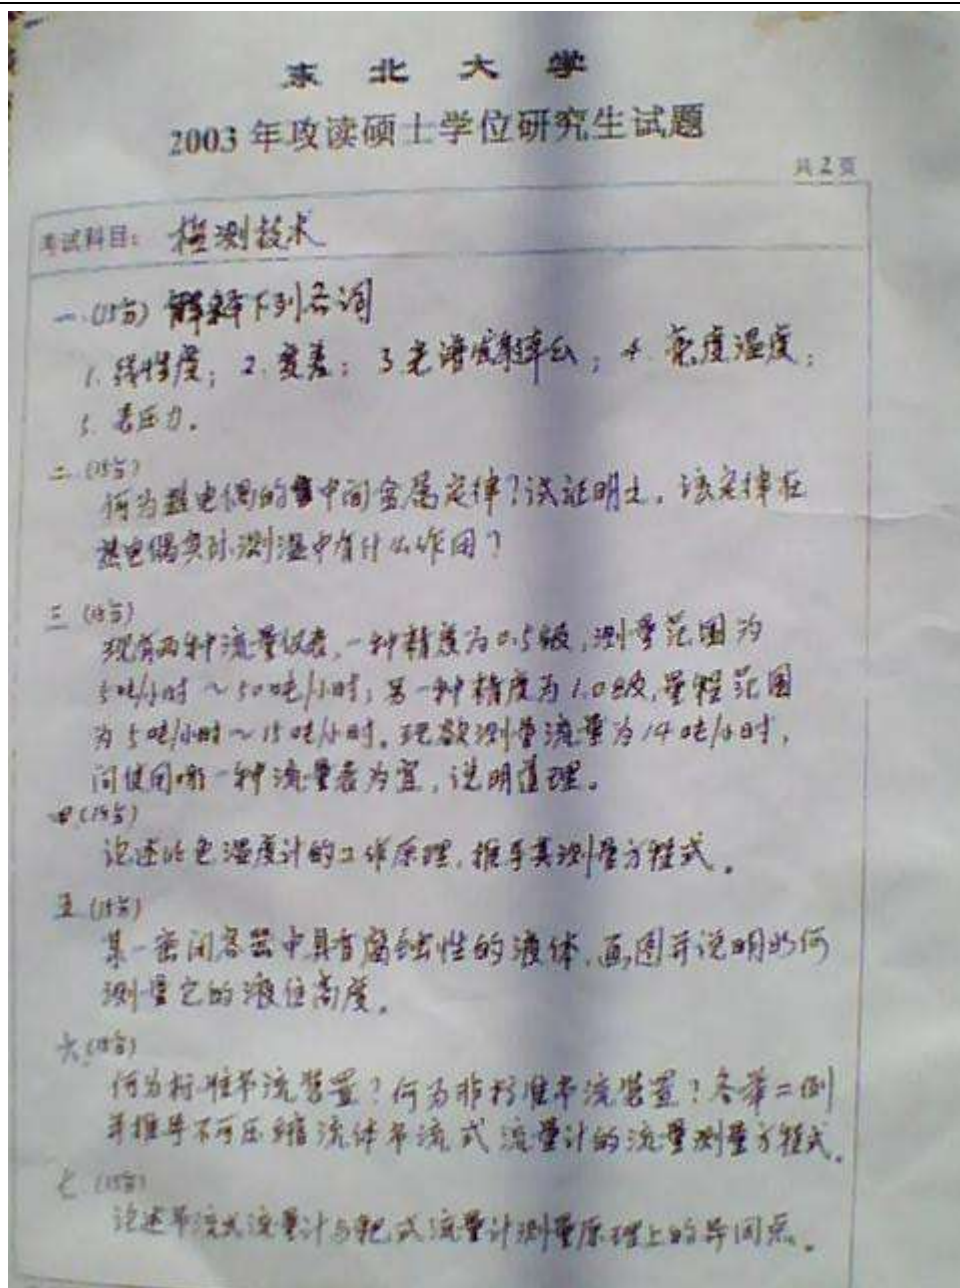 东 北 大 学
2003 年攻读硕士学位研究生试题
共 2 页
考试科目: 检测技术
一.(15分) 解释下列名词
1. 线性度; 2. 变差; 3. 光谱发射率ελ; 4. 亮度温度;
5. 表压力。
二.(15分)
何为热电偶的中间金属定律?试证明之。该定律在
热电偶实际测温中有什么作用?
三 (15分)
现有两种流量仪表,一种精度为0.5级,测量范围为
5吨/小时 ~ 50吨/小时; 另一种精度为1.0级,量程范围
为 5吨/小时 ~ 15吨/小时。现欲测量流量为14吨/小时,
问使用哪一种流量表为宜,说明道理。
四.(15分)
论述比色温度计的工作原理,推导其测量方程式。
五.(15分)
某一密闭容器中具有腐蚀性的液体,画图并说明如何
测量它的液位高度。
六.(15分)
何为标准节流装置?何为非标准节流装置?各举二例
并推导不可压缩流体节流式流量计的流量测量方程式。
七 (15分)
论述节流式流量计与靶式流量计测量原理上的异同点。